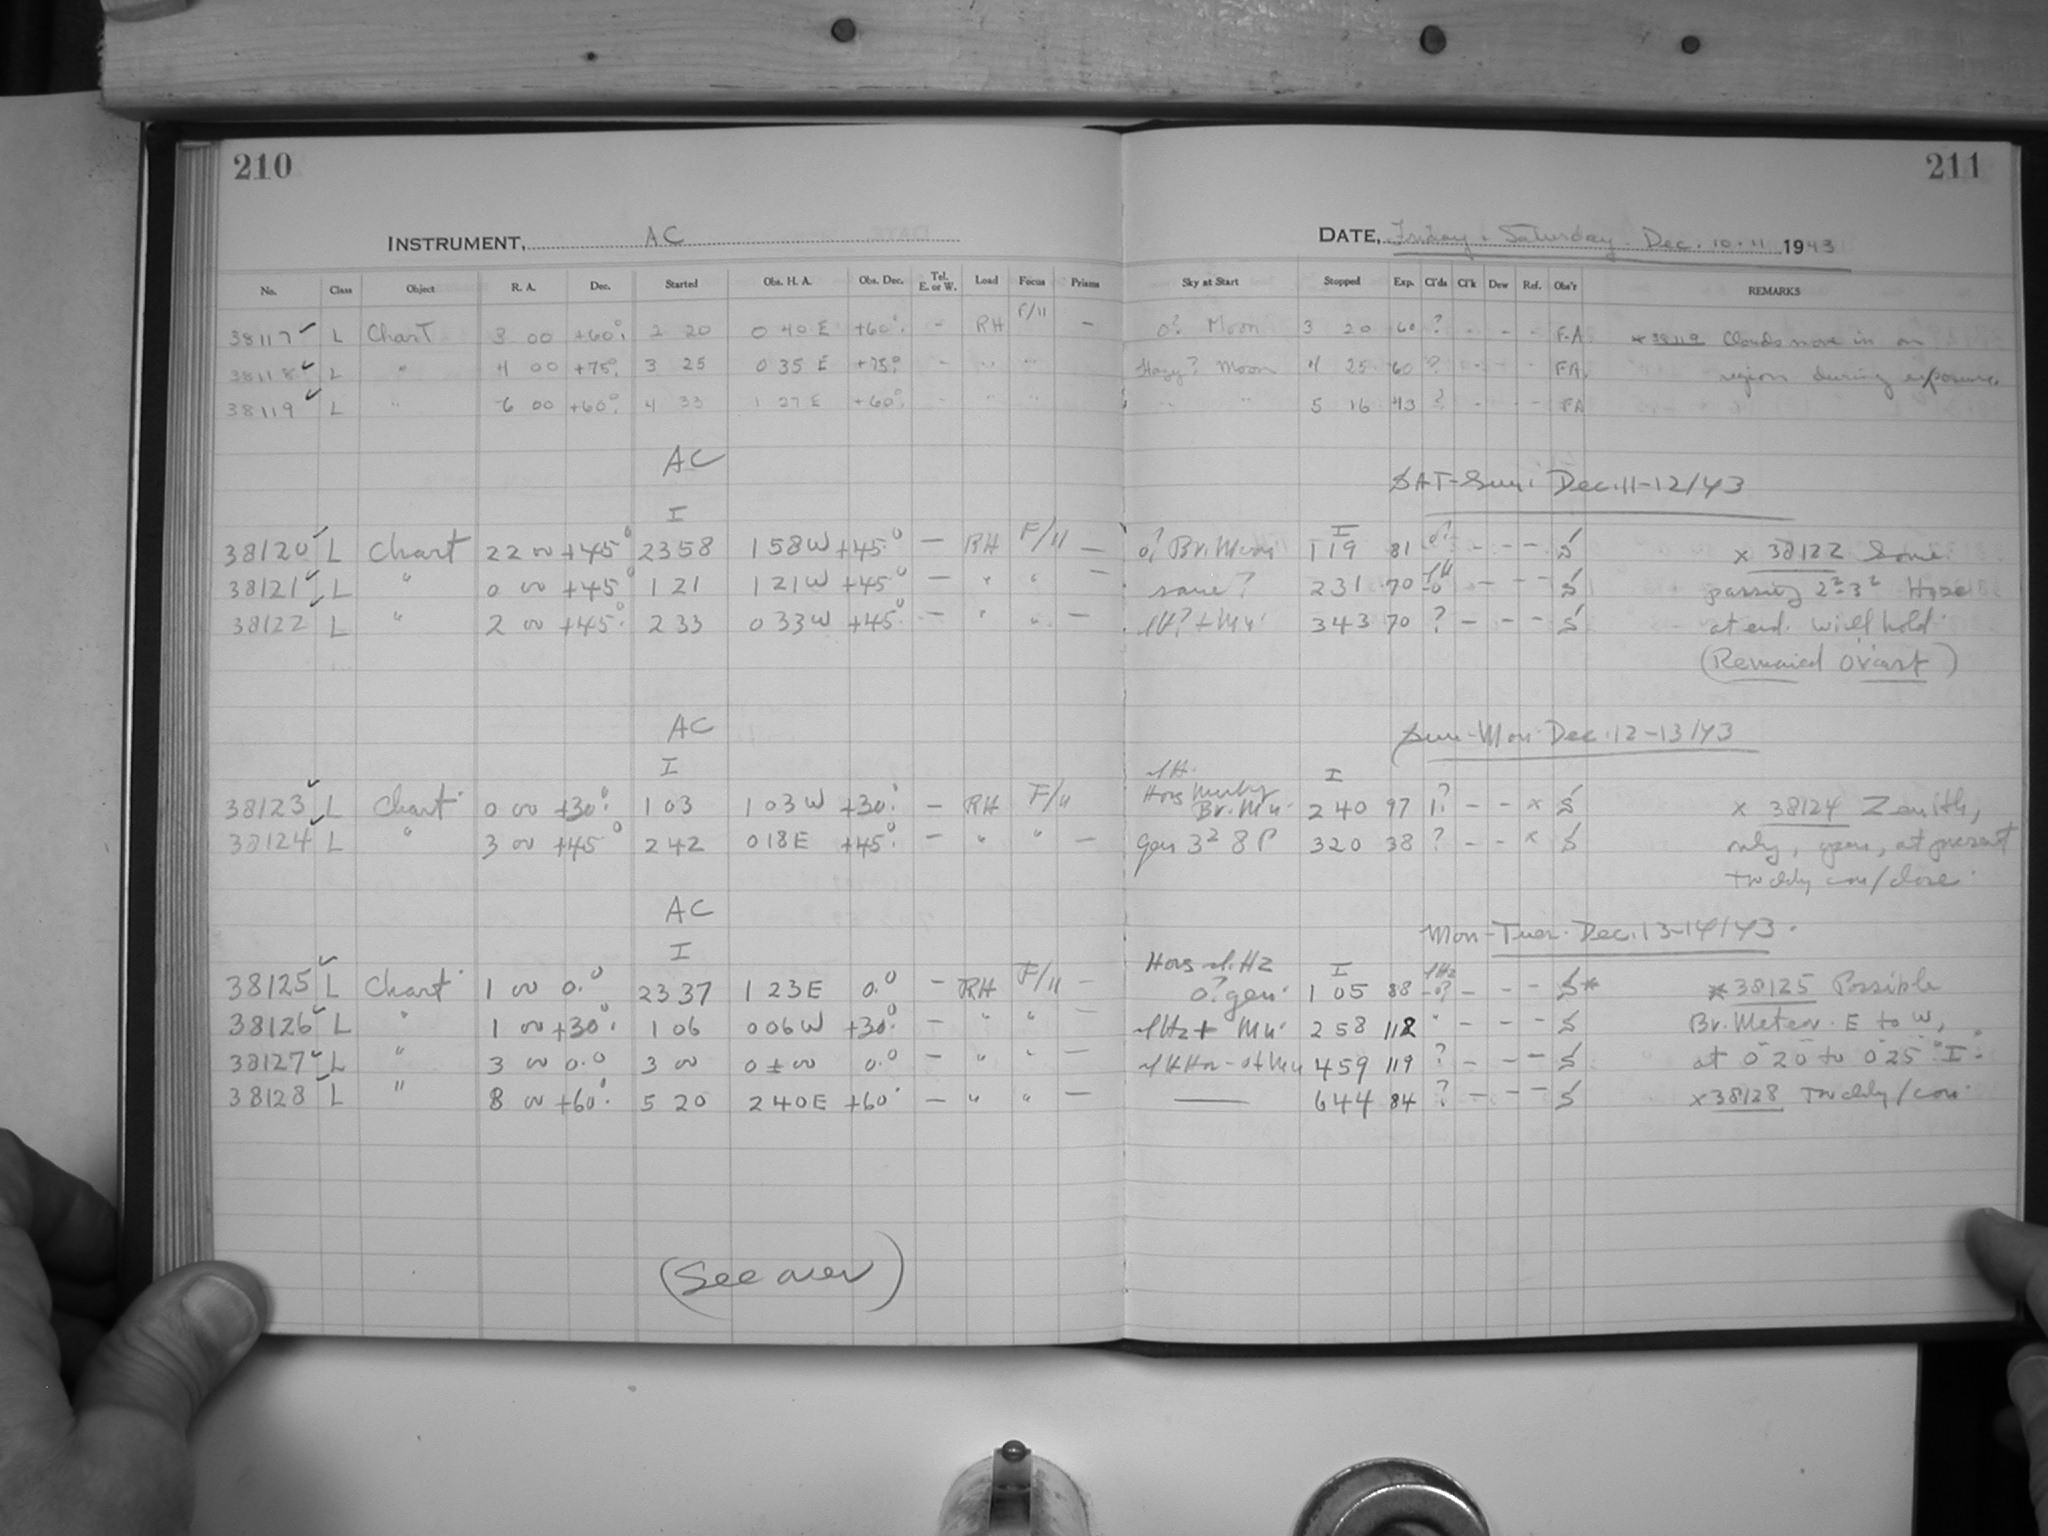 210
211
INSTRUMENT, AC
DATE, Friday · Saturday · Dec. 10-11 1943
No. Class Object R. A. Dec. Started Obs. H. A. Obs. Dec. Tel. E. or W. Load Focus Prisms Sky at Start Stopped Exp. Cl'ds Cl'k Dew Ref. Obs'r REMARKS
38117 ✓ L Chart 3 00 +60° 2 20 0 40 E +60° - RH F/11 - 0? Moon 3 20 60 ? - - - F.A *38119 Clouds move in on
38118 ✓ L " 4 00 +75° 3 25 0 35 E +75° - " " Hazy? Moon 4 25 60 ? - - - FA. region during exposure.
38119 ✓ L " 6 00 +60° 4 33 1 27 E +60° - " " " " 5 16 43 ? - - - FA
AC
SAT-Sun: Dec. 11-12/43
I
I
38120 ✓ L Chart 22 00 +45° 2358 1 58 W +45° - RH F/11 - 0? Br. Moon 1 19 81 0? - - - S x 38122 Some
38121 ✓ L " 0 00 +45° 1 21 1 21 W +45° - " " - same? 2 31 70 - - - S passing 2-3
38122 ✓ L " 2 00 +45° 2 33 0 33 W +45° - " " - 3 43 70 ? - - - S at end. Will hold
(Remained O'cast)
AC
Sun-Mon Dec. 12-13/43
I
I
38123 ✓ L Chart 0 00 +30° 1 03 1 03 W +30° - RH F/11 Hors Murky Br. Mn. 2 40 97 1? - - x S x 38124 Zenith,
38124 ✓ L " 3 00 +45° 2 42 0 18 E +45° - " " - gen 3² 8 P 3 20 38 ? - - x S only, gen, at present
Twddy con/close
AC
Mon-Tues. Dec. 13-14/43.
I
Hors sl. Hz
I
38125 ✓ L Chart 1 00 0.° 2337 1 23 E 0.° - RH F/11 - 0? gen. 1 05 88 - - - S* *38125 Possible
38126 ✓ L " 1 00 +30° 1 06 0 06 W +30° - " " - sl Hz + Mn. 2 58 112 " - - - S Br. Meteor. E to W,
38127 ✓ L " 3 00 0.° 3 00 0 ± 00 0.° - " " - 4 59 119 ? - - - S at 0 20 to 0 25 "I".
38128 ✓ L " 8 00 +60° 5 20 2 40 E +60° - " " - — 6 44 84 ? - - - S x38128 Twddy/con
(See over)